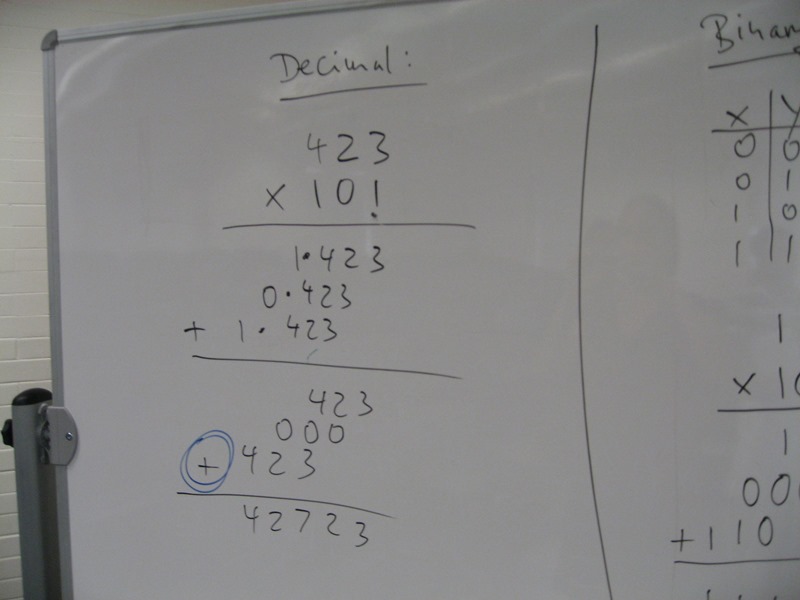 Decimal:
423
x 101
1·423
0·423
+ 1·423
423
000
+ 423
42723
X | Y
0 | 0
0 | 1
1 | 0
1 | 1
1
x 10
1
00
+ 110